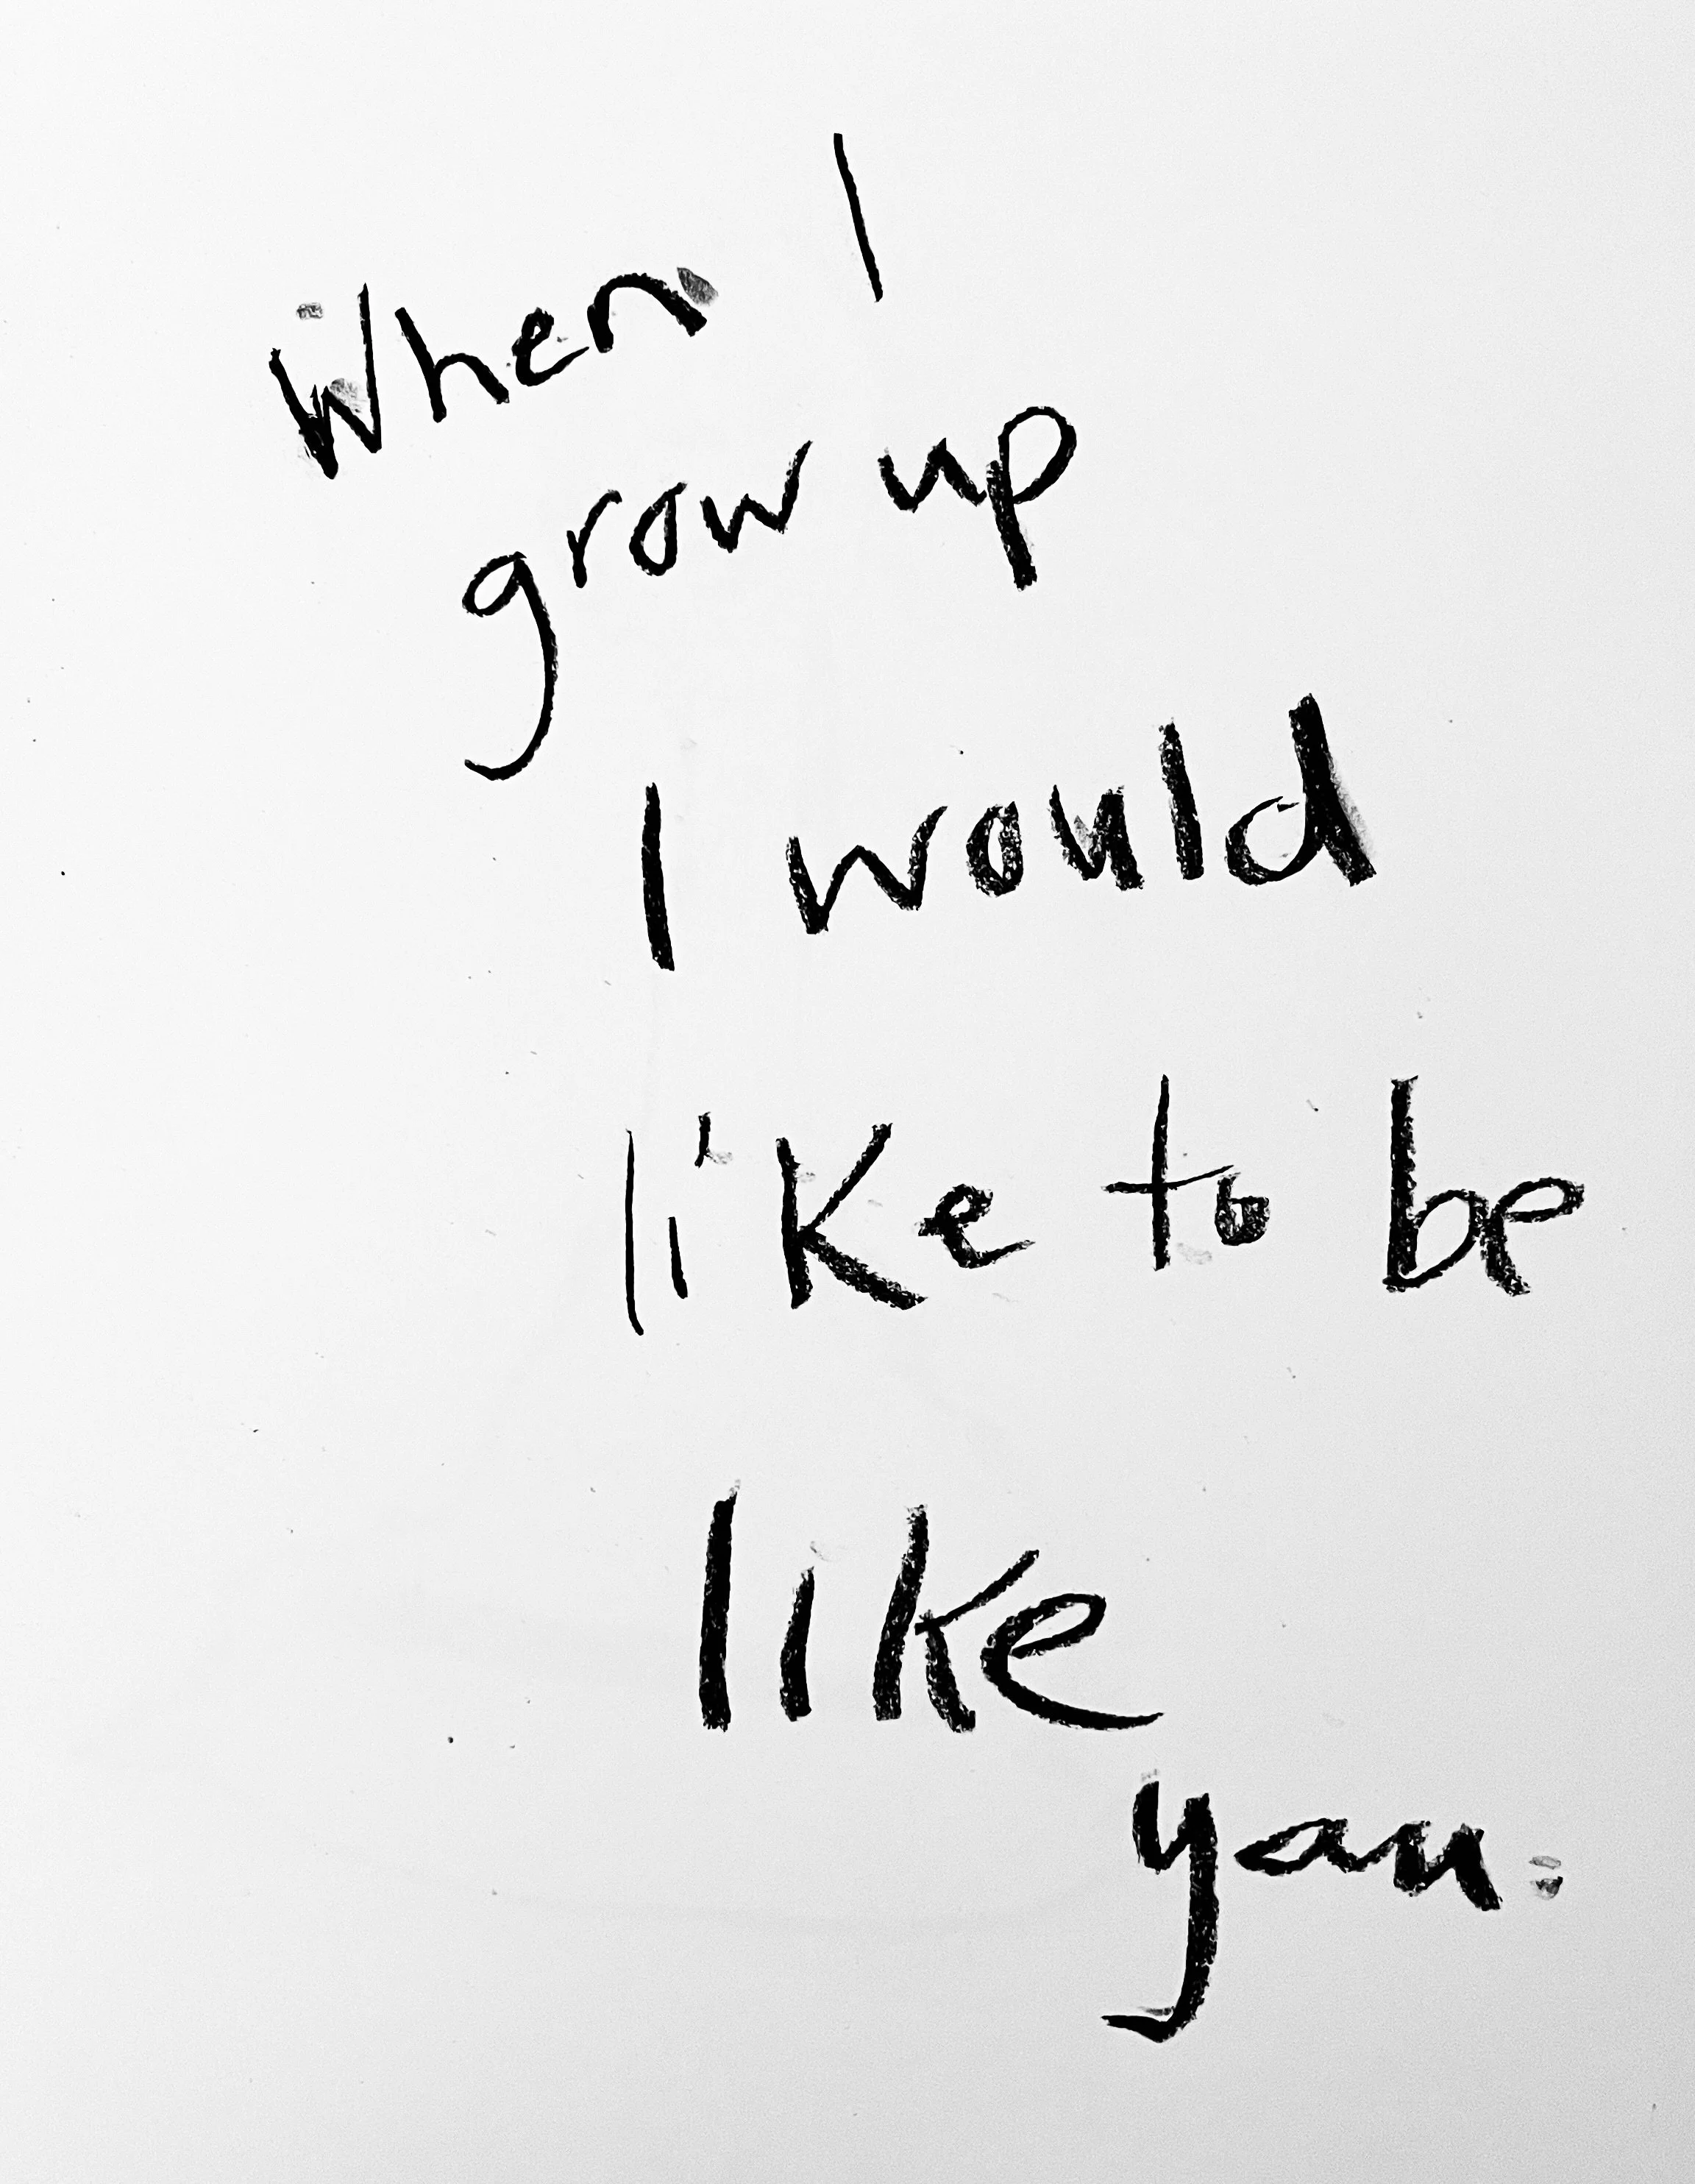 When I
grow up
I would
like to be
like
you.